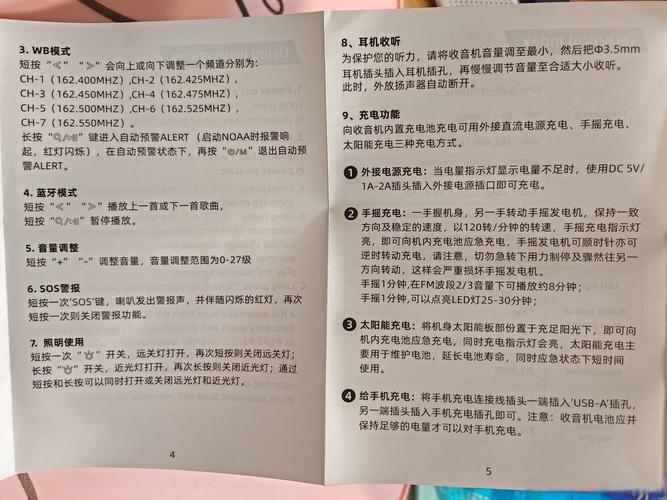 3. WB模式
短按“≪” “≫”会向上或向下调整一个频道分别为：
CH-1（162.400MHZ）,CH-2（162.425MHZ）,
CH-3（162.450MHZ）,CH-4（162.475MHZ）,
CH-5（162.500MHZ）,CH-6（162.525MHZ）,
CH-7（162.550MHZ）.
长按“/”键进入自动预警ALERT（启动NOAA时报警响
起，红灯闪烁），在自动预警状态下，再按“⏻/M”退出自动
预警ALERT。
4. 蓝牙模式
短按“≪” “≫”播放上一首或下一首歌曲，
短按“/”暂停播放。
5. 音量调整
短按“+” “-”调整音量，音量调整范围为0-27级
6. SOS警报
短按一次‘SOS’键，喇叭发出警报声，并伴随闪烁的红灯，再次
短按一次则关闭警报功能。
7. 照明使用
短按一次“”开关，远关灯打开，再次短按则关闭远关灯；
长按“”开关，近光灯打开，再次长按则关闭近光灯；通过
短按和长按可以同时打开或关闭远光灯和近光灯。
4
8、耳机收听
为保护您的听力，请将收音机音量调至最小，然后把Φ3.5mm
耳机插头插入耳机插孔，再慢慢调节音量至合适大小收听。
此时，外放扬声器自动断开。
9、充电功能
向收音机内置充电池充电可用外接直流电源充电、手摇充电、
太阳能充电三种充电方式。
1 外接电源充电：当电量指示灯显示电量不足时，使用DC 5V/
1A-2A插头插入外接电源插口即可充电。
2 手摇充电：一手握机身，另一手转动手摇发电机，保持一致
方向及稳定的速度，以120转/分钟的转速，手摇充电指示灯
亮，即可向机内充电池应急充电，手摇发电机可顺时针亦可
逆时转动充电，请注意，切勿急转下用力制停及骤然往另一
方向转动，这样会严重损坏手摇发电机。
手摇1分钟,在FM波段2/3音量下可播放约8分钟；
手摇1分钟,可以点亮LED灯25-30分钟；
3 太阳能充电：将机身太阳能板部份置于充足阳光下，即可向
机内充电池应急充电，同时充电指示灯会亮，太阳能充电主
要用于维护电池，延长电池寿命，同时应急状态下短时间
使用。
4 给手机充电：将手机充电连接线插头一端插入‘USB-A’插孔，
另一端插头插入手机充电插孔即可。注意：收音机电池应并
保持足够的电量才可以对手机充电。
5